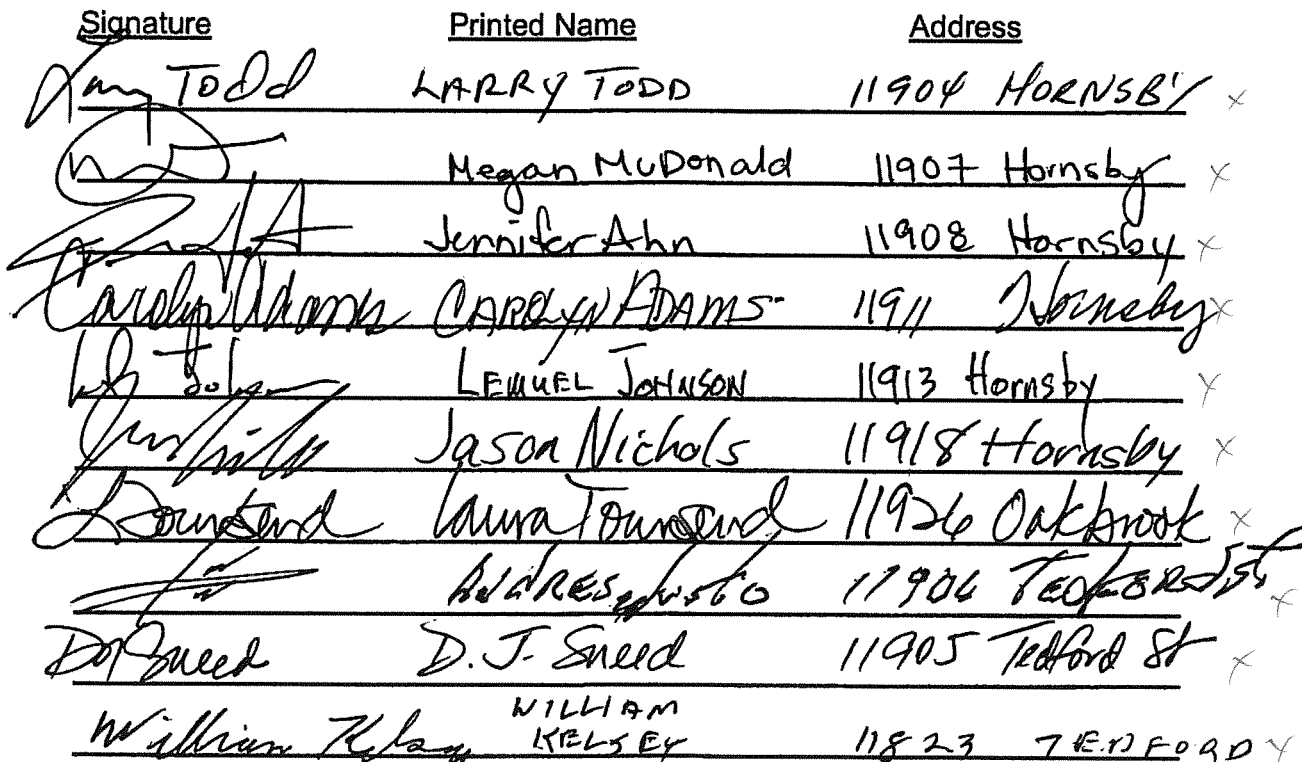 Signature Printed Name Address
Larry Todd LARRY TODD 11904 HORNSBY x
Megan McDonald 11907 Hornsby x
Jennifer Ahn 11908 Hornsby x
Carolyn Adams CAROLYN ADAMS 11911 Hornsby x
LEMUEL JOHNSON 11913 Hornsby x
Jason Nichols 11918 Hornsby x
LTownsend Laura Townsend 11926 Oakbrook x
ANDRES 11906 TEDFORD ST x
DJ Sneed D.J. Sneed 11905 Tedford St x
WILLIAM
William Kelsey KELSEY 11823 TEDFORD x